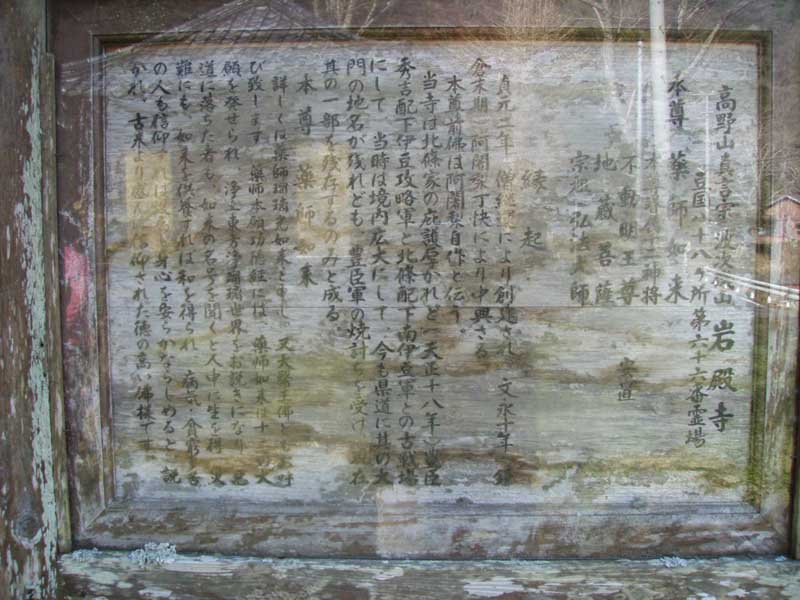 高野山真言宗 波次磯山 岩殿寺
豆国八十八ヶ所第六十六番霊場
本尊 薬師如来
十二神将
不動明王尊
地蔵菩薩 安置
宗祖 弘法大師
縁起
貞元二年 僧 により創建され 文永十年 鎌
倉末期 阿闍梨了快により中興さる
本尊前佛は阿闍梨自作と伝う
当寺は北條家の庇護厚かれど 天正十八年 豊臣
秀吉配下伊豆攻略軍と北條配下南伊豆軍との古戦場
にして 当時は境内広大にして 今も県道に其の大
門の地名が残れども 豊臣軍の焼討ちを受け 現在
其の一部を残存するのみと成る
本尊 薬師如来
詳しくは薬師瑠璃光如来と申し 又大医王佛とも
び致します 薬師本願功徳経には 薬師如来は十二の大
願を発せられ 浄土東方浄瑠璃世界をお説きになり 悪
道に落ちた者も、如来の名号を聞くと人中に生を得 又
難にも、如来を供養すれば和を得られ 病気
の人も信仰すれば 身心を安らかならしめると 説
かれ、古来より 信仰された徳の高い佛様です